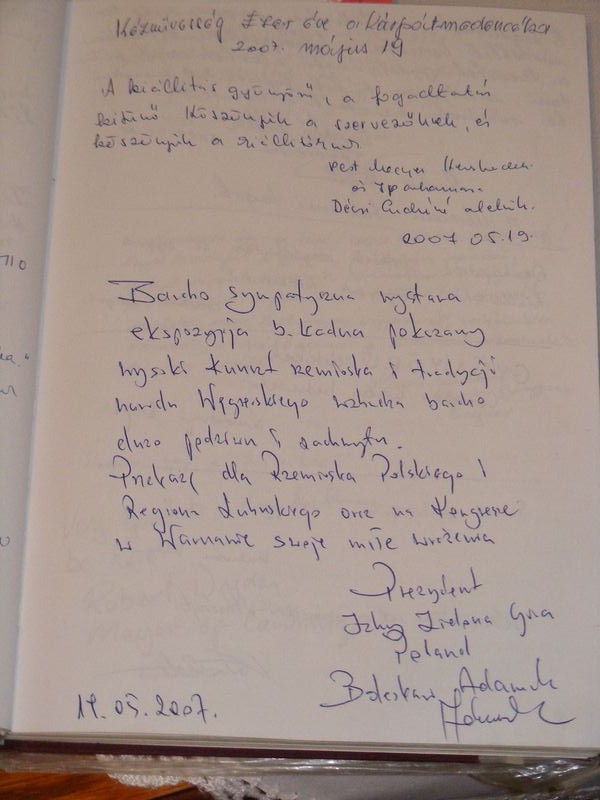 Kézművesség Ezer éve a Kárpátmedencében
2007. május 19
A kiállítás gyönyörű, a fogadtatás
kitünő Köszönjük a szervezőknek, és
köszönjük a
Pest Megyei
és
Décsi Andrásné alelnök.
2007 05.19.
710
Bardzo sympatyczna wystawa
ekspozycja b. ładna pokazany
wysoki kunszt rzemiosła i tradycji
narodu Węgierskiego wzbudza bardzo
dużo podziwu i zachwytu.
Przekażę dla Rzemiosła Polskiego i
Regionu Lubuskiego oraz na Kongresie
w Warszawie swoje miłe wrażenia
Prezydent
Izby Zielona Góra
Poland
Bolesław Adamek
19.05.2007.